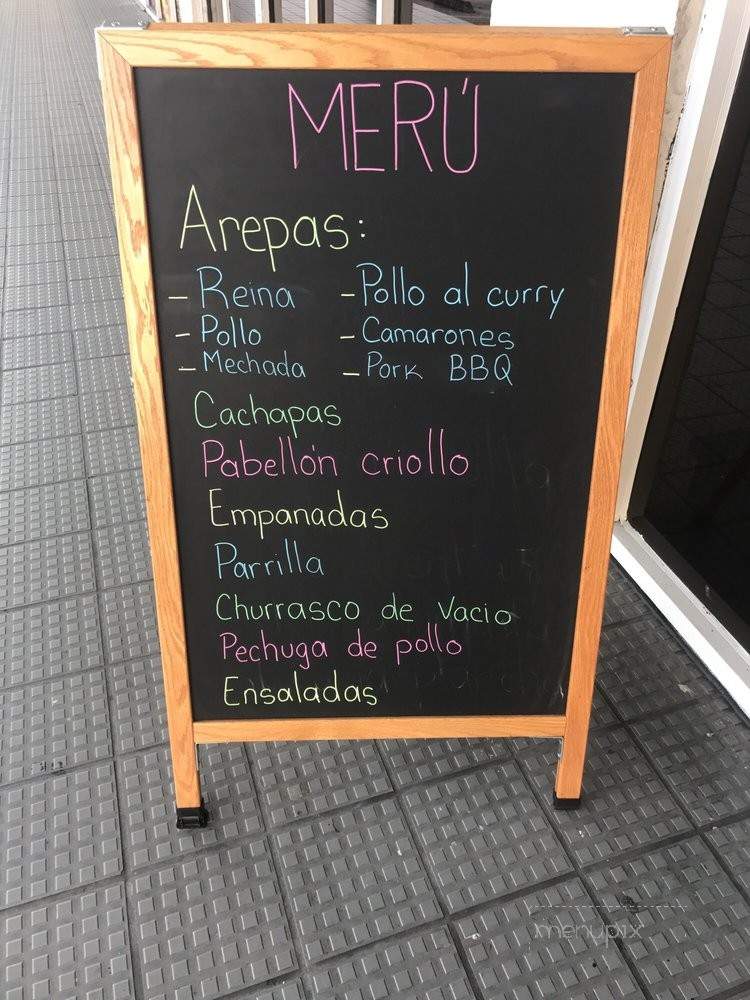 MERÚ
Arepas:
- Reina - Pollo al curry
- Pollo - Camarones
- Mechada - Pork BBQ
Cachapas
Pabellón criollo
Empanadas
Parrilla
Churrasco de vacio
Pechuga de pollo
Ensaladas
menupix